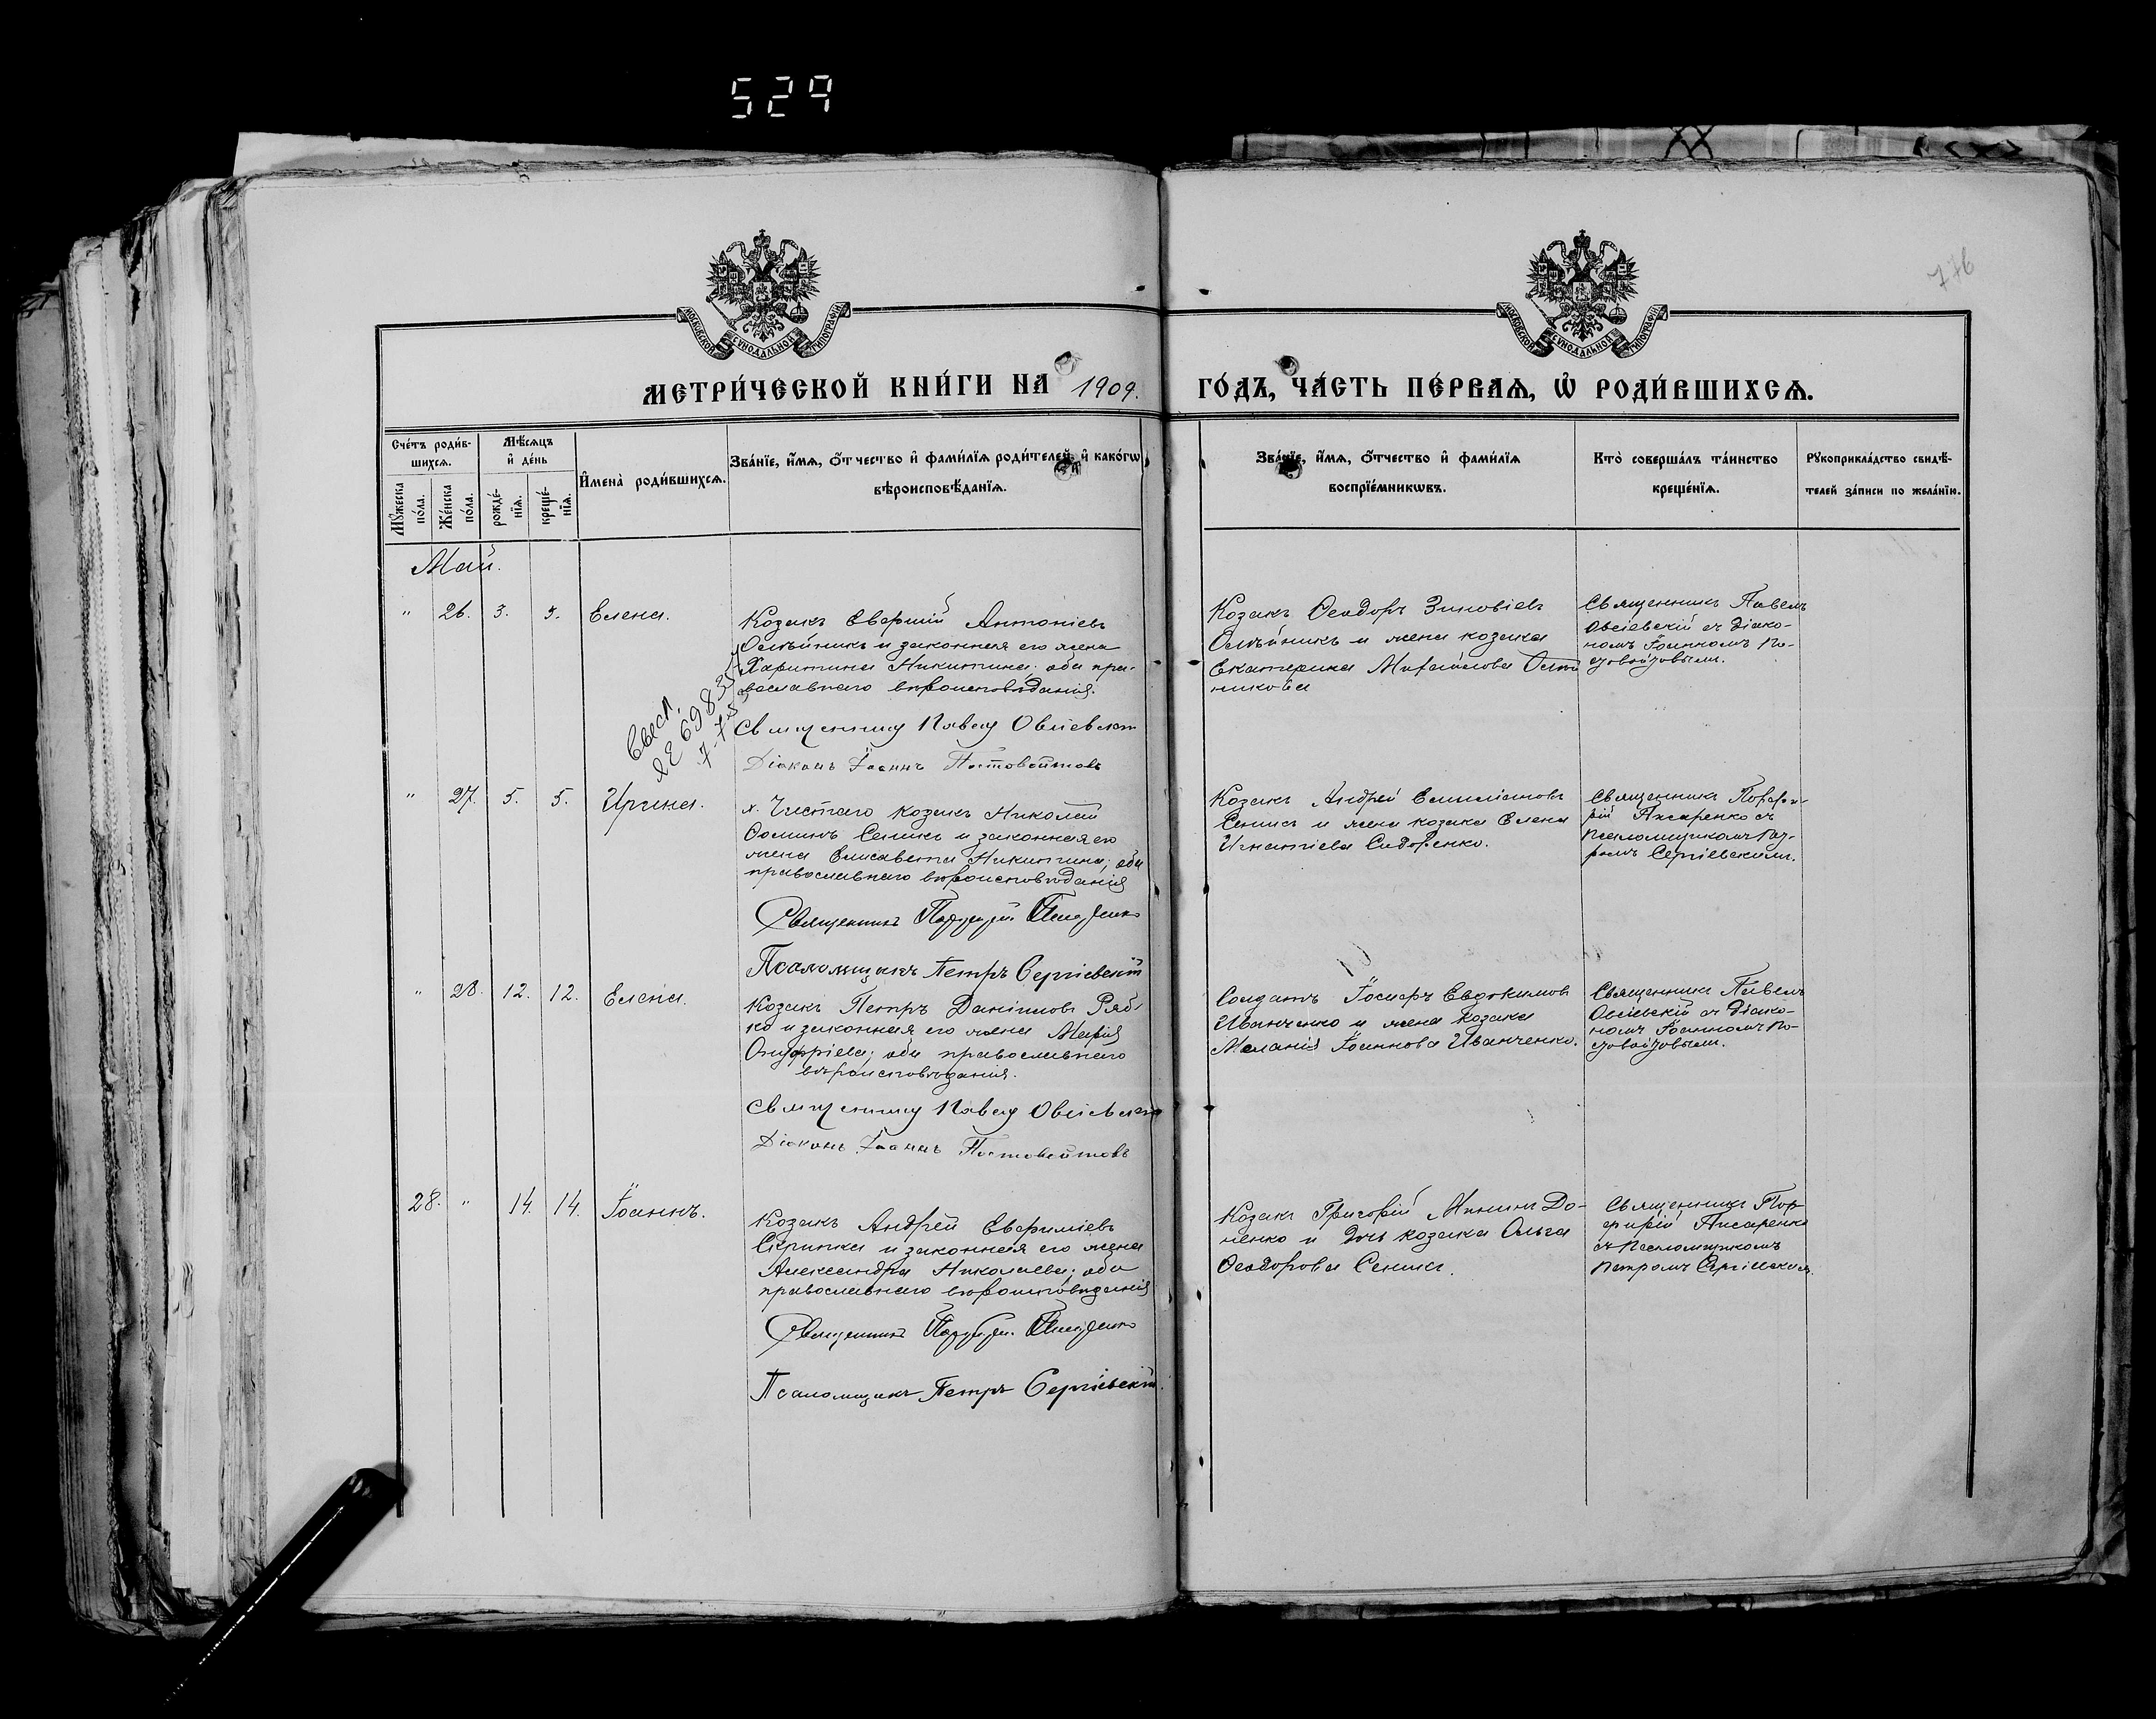 529
776
МОСКОВСКОЙ СѴНОДАЛЬНОЙ ТИПОГРАФІИ
МОСКОВСКОЙ СѴНОДАЛЬНОЙ ТИПОГРАФІИ
МЕТРИ́ЧЕСКОЙ КНИ́ГИ НА 1909. ГО́ДЪ, ЧА́СТЬ ПЕ́РВАѦ, Ѡ҆ РОДИ́ВШИХСѦ.
Сче́тъ роди́в-
шихсѧ.
Мѣ́сѧцъ
и҆ де́нь
Мꙋ́жеска по́ла.
Же́нска по́ла.
рожде́-
нїѧ.
креще́-
нїѧ.
И҆мена̀ роди́вшихсѧ.
Зва́нїе, и҆́мѧ, ѻ҆́тчество и҆ фами́лїѧ роди́телей, и҆ како́гѡ
вѣроисповѣ́данїѧ.
Зва́нїе, и҆́мѧ, ѻ҆́тчество и҆ фами́лїѧ
воспрїе́мникѡвъ.
Кто̀ соверша́лъ та́инство
креще́нїѧ.
Рꙋкоприкла́дство свидѣ́-
телей за́писи по жела́нїю.
Май.
" 26. 3. 5. Елена.
Козакъ Евфимій Антоніевъ
Олѣйникъ и законная его жена
Харитина Никитина; оба пра-
вославнаго вѣроисповѣданія.
Священникъ Павелъ Овсіевскій
Діаконъ Іоаннъ Постовойтовъ
Козакъ Ѳеодоръ Зиновіевъ
Олѣйникъ и жена козака
Екатерина Михайлова Олѣй
никова
Священникъ Павелъ
Овсіевскій съ діако-
номъ Іоанномъ По-
стовойтовымъ.
" 27. 5. 5. Ирина.
х. Чистаго козакъ Николай
Ѳоминъ Сеникъ и законная его
жена Елисавета Никитина; оба
православнаго вѣроисповѣданія
Священникъ Порфирій Писаренко
Псаломщикъ Петръ Сергіевскій
Козакъ Андрей Емиліановъ
Сеникъ и жена козака Елена
Игнатіева Сидоренко.
Священникъ Порфи-
рій Писаренко съ
псаломщикомъ Пет-
ромъ Сергіевскимъ.
" 28. 12. 12. Елена.
Козакъ Петръ Даніиловъ Ряб-
ко и законная его жена Марія
Онуфріева; оба православнаго
вѣроисповѣданія.
Священникъ Павелъ Овсіевскій
Діаконъ Іоаннъ Постовойтовъ
Солдатъ Іосифъ Евдокимовъ
Иванченко и жена козака
Меланія Іоаннова Иванченко.
Священникъ Павелъ
Овсіевскій съ діако-
номъ Іоанномъ По-
стовойтовымъ.
28. " 14. 14. Іоаннъ.
Козакъ Андрей Евфиміевъ
Скрипка и законная его жена
Александра Николаева; оба
православнаго вѣроисповѣданія
Священникъ Порфирій Писаренко
Псаломщикъ Петръ Сергіевскій.
Козакъ Григорій Мининъ До-
ненко и дочь козака Ольга
Ѳеодорова Сеникъ.
Священникъ Пор-
фирій Писаренко
съ псаломщикомъ
Петромъ Сергіевскимъ.